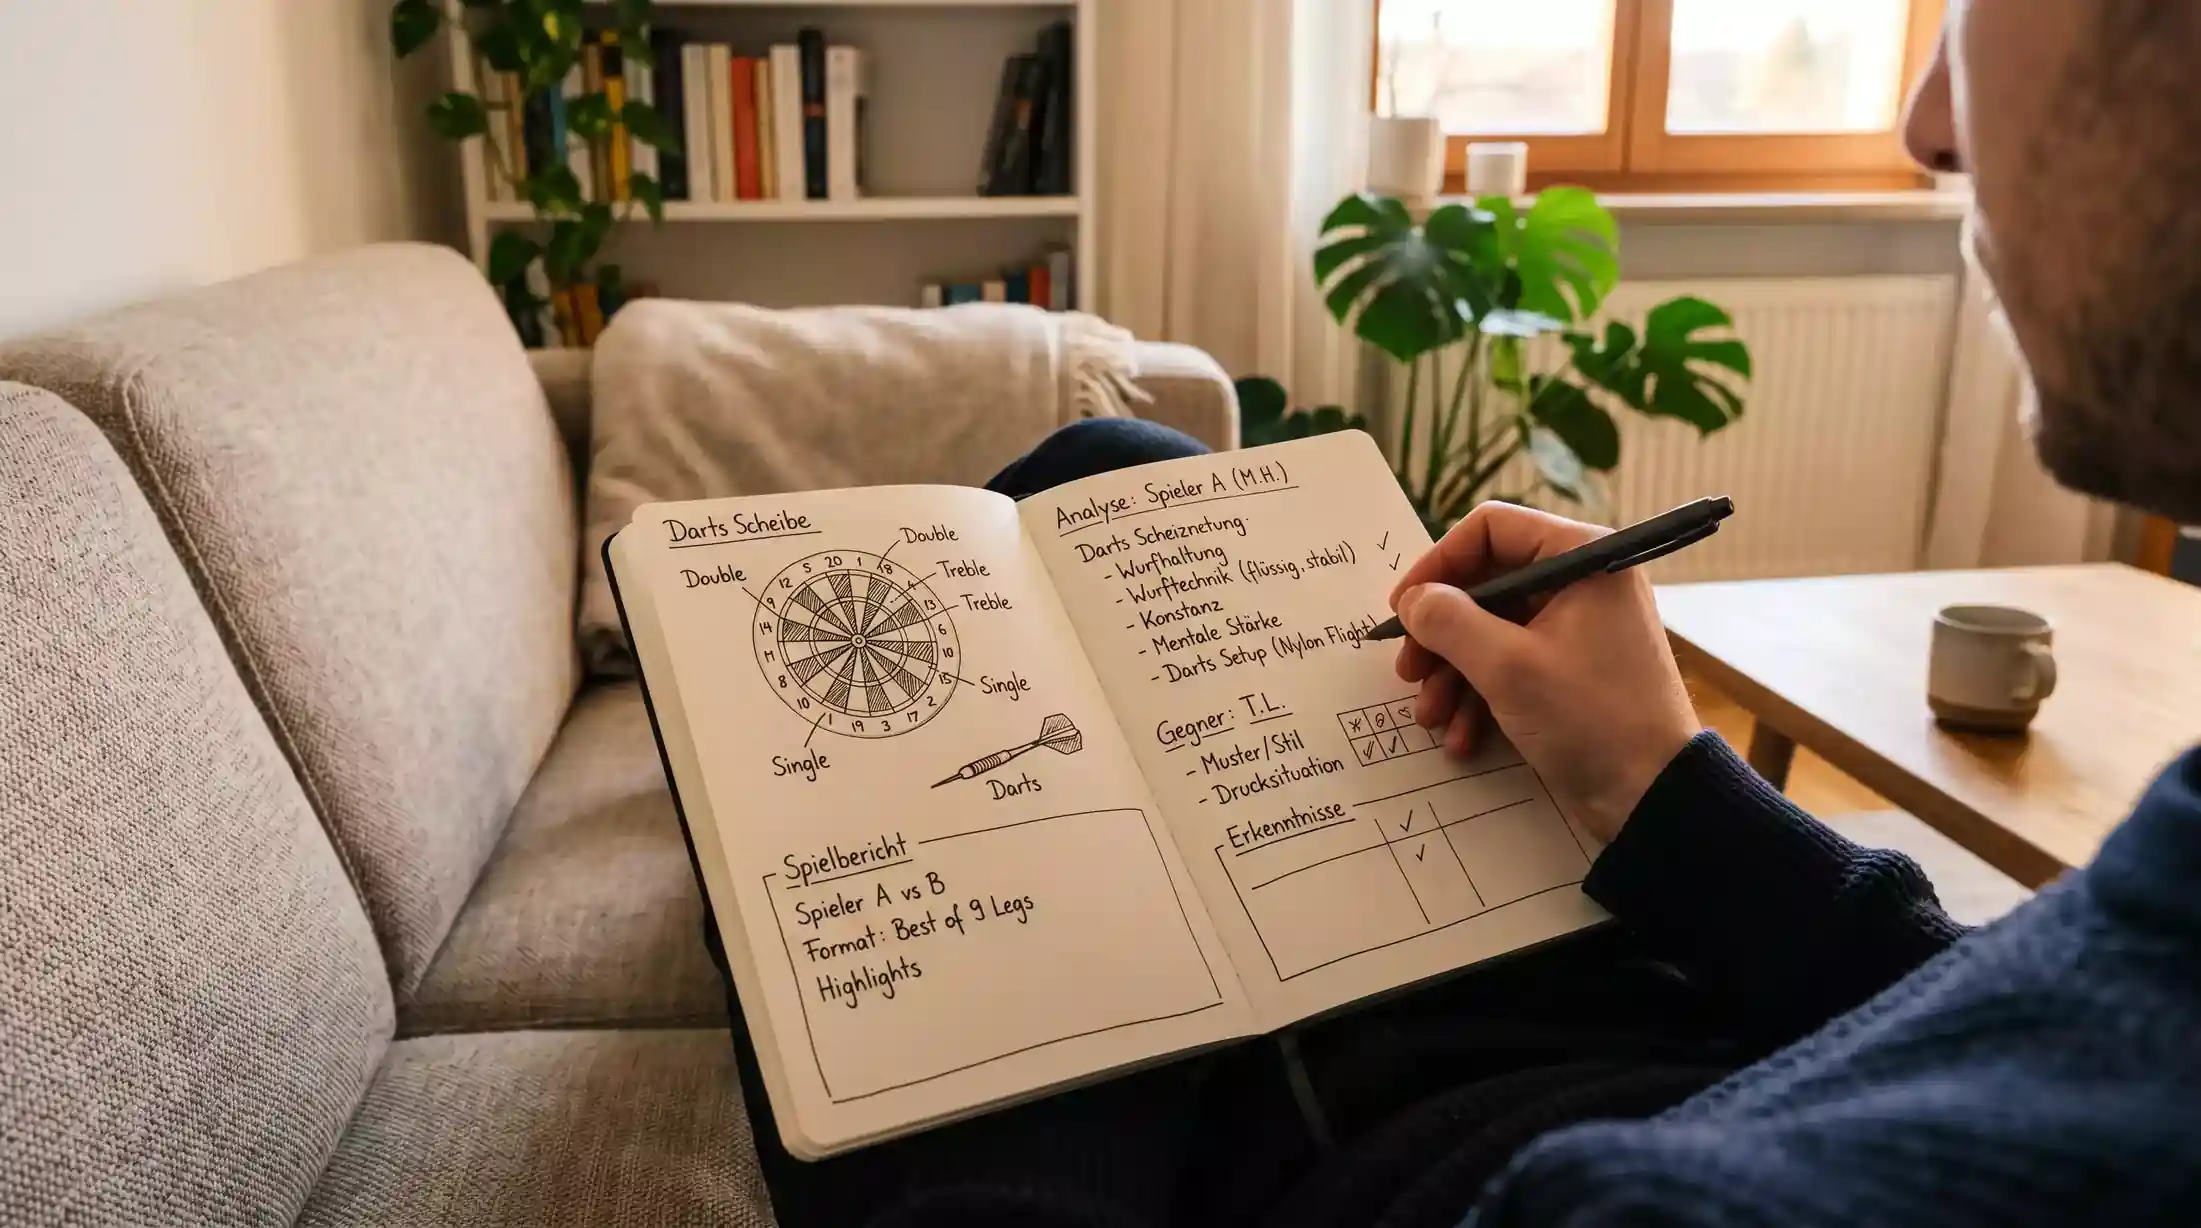 Darts Scheibe
Double
Double
Treble
Treble
Single
Single
20 1 18 4 13 6 10 15 2 17 3 19 1 10 8 11 14 9 12 5
Darts
Spielbericht
Spieler A vs B
Format: Best of 9 Legs
Highlights
Analyse: Spieler A (M.H.)
Darts Scheiznetung.
- Wurfhaltung
- Wurftechnik (flüssig, stabil)
- Konstanz
- Mentale Stärke
- Darts Setup (Nylon Flight)
Gegner: T.L.
- Muster/Stil
- Drucksituation
Erkenntnisse